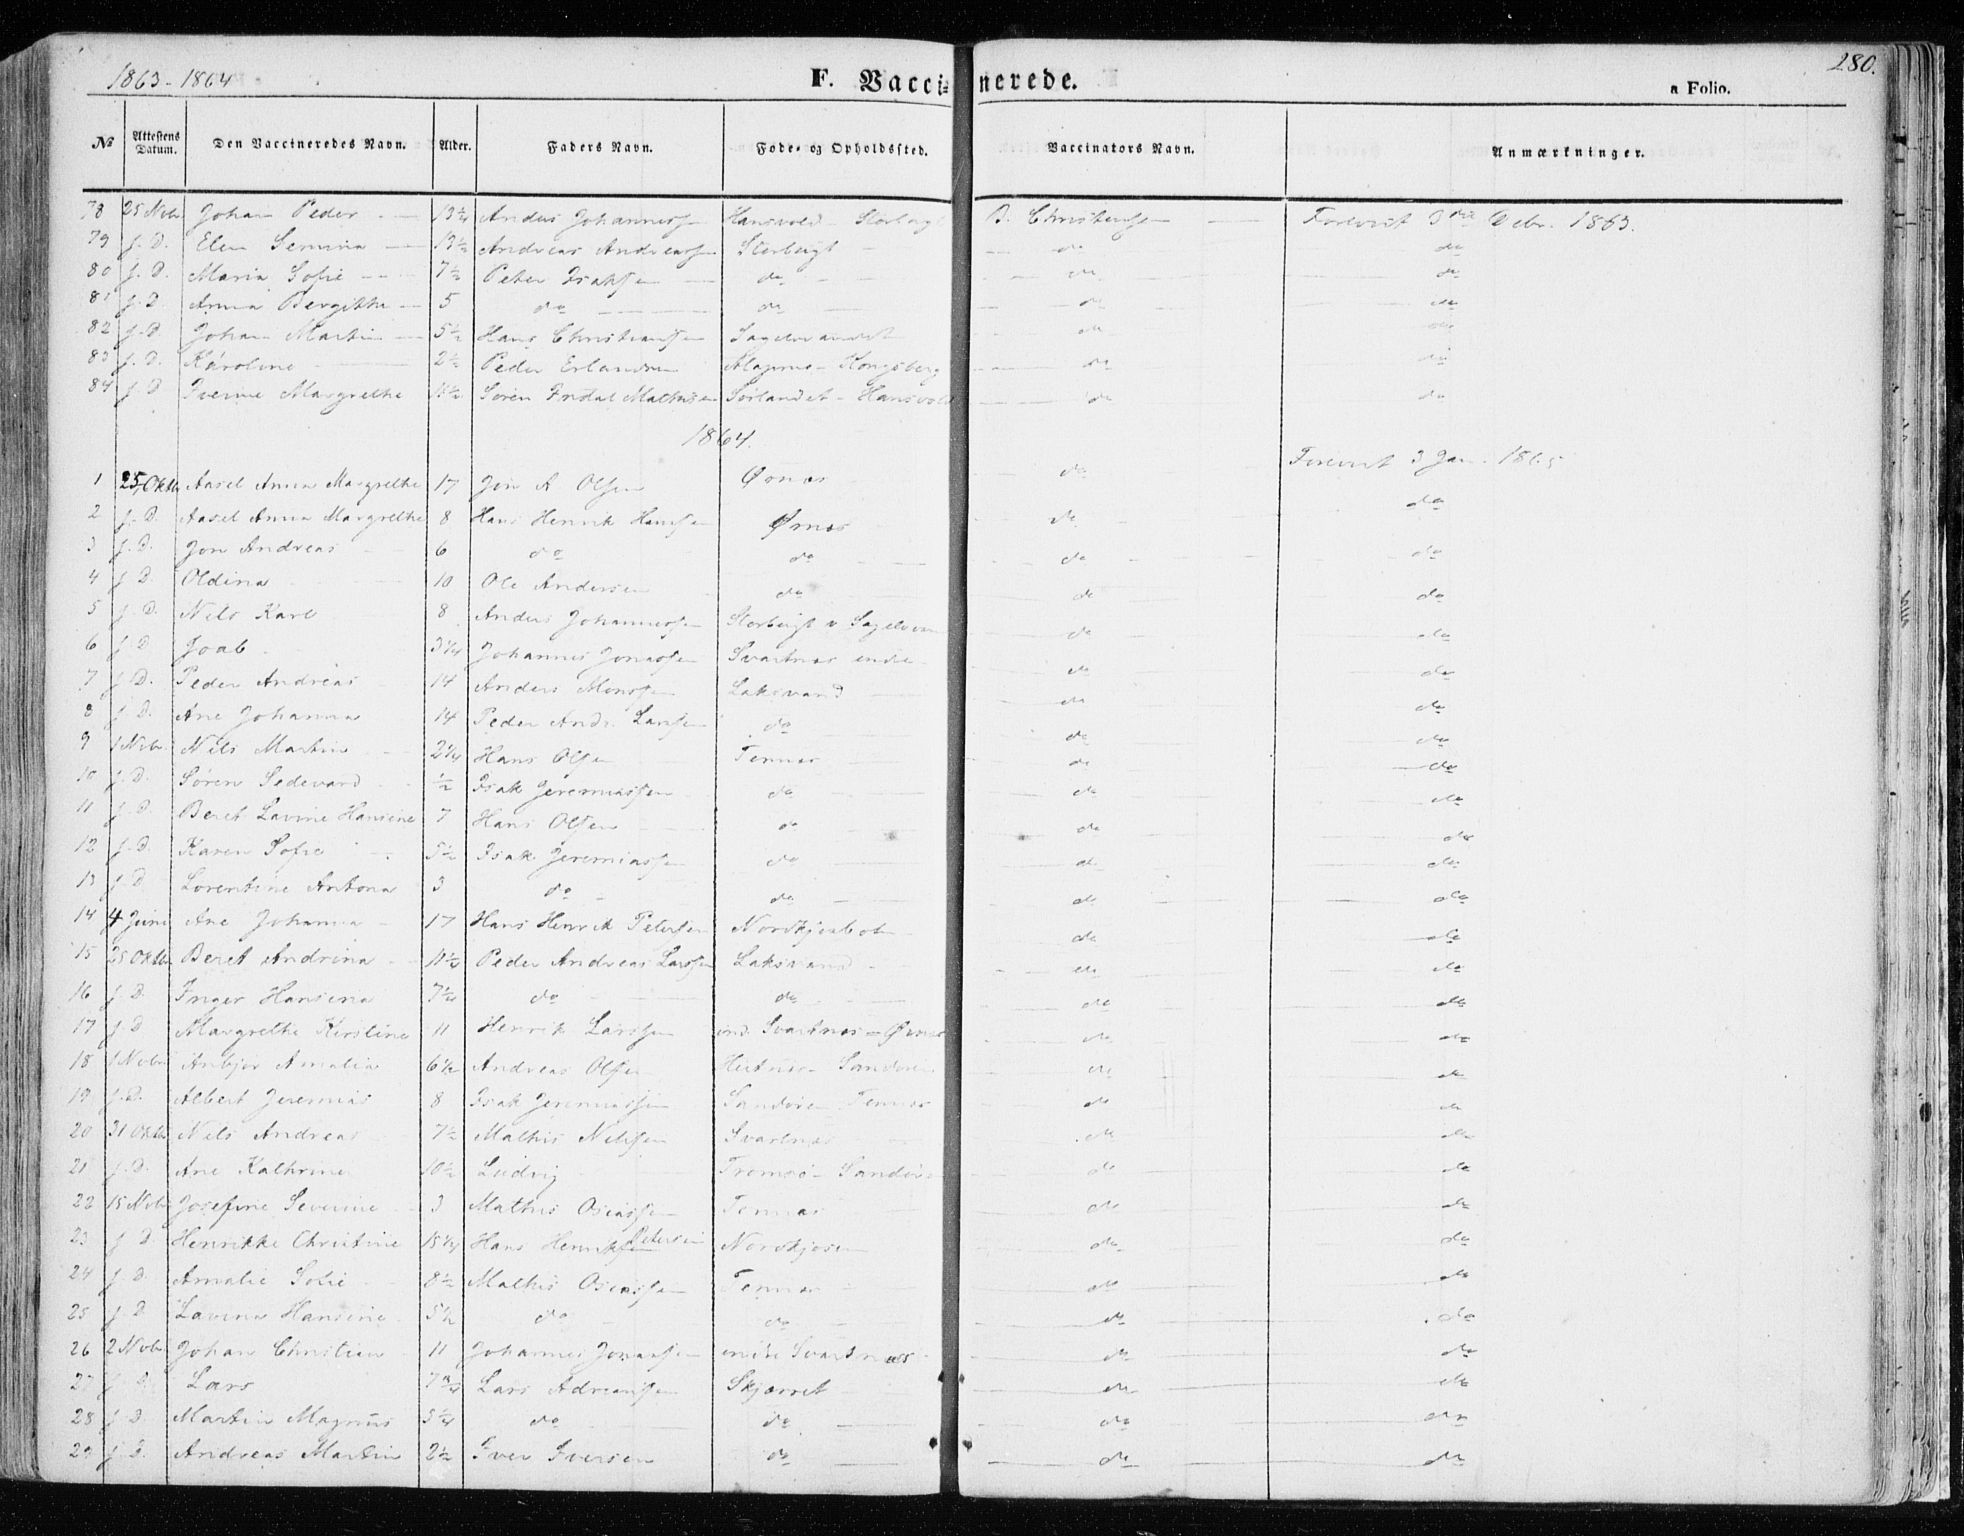 1863-1864 F. Vaccinerede. a Folio. 280.
№ Attestens Datum. Den Vaccineredes Navn. Alder. Faders Navn. Føde- og Opholdssted. Vaccinators Navn. Anmærkninger.
78 25 Nobr Johan Peder 13 1/4 Anders Johannessen Hansvold - B. Christensen Forevist 3die Debr. 1863.
79 j. D. Elen 13 1/2 Andreas Andreassen Storbergt do do
80 j. D. Maria Sofie 7 1/2 Peter Isaksen do do do
81 j. D. Anna Bergitthe 5 do do do do
82 j. D. Johan Martin 5 1/2 Hans Christiansen Sagelvvandet do do
83 j. D. Karoline 2 1/2 Peder Kongsberg do do
84 j. D. Iverine Margrethe 11 1/2 Søren Mathisen Sørlandet - Hansvold do do
1864.
1 25 Oktbr Aasel Anna Margrethe 17 Jon A Olsen Ørnæs do Forevist 3 Jan. 1865
2 j. D. Aasel Anna Margrethe 8 Hans Henrik Hansen Ørnæs do do
3 j. D. Jon Andreas 6 do do do do
4 j. D. Oldina 10 Ole Andersen do do do
5 j. D. Nils Karl 8 Anders Johannessen Storbergt v do do
6 j. D. Joab 3 1/4 Johannes Jonassen Svartnæs indre do do
7 j. D. Peder Andreas 14 Anders Monssen Laksvand do do
8 j. D. Ane Johanna 14 Peder Andr. Larssen do do do
9 1 Nobr. Nils Martin 2 1/4 Hans Olsen Tennæs do do
10 j. D. Søren Sedevard 1/2 Isak Jeremiassen do do do
11 j. D. Beret Lavine Hansine 7 Hans Olsen do do do
12 j. D. Karen Sofie 5 1/2 Isak Jeremiassen do do do
13 j. D. Lorentine Antona 3 do do do do
14 4 Juni Ane Johanna 17 Hans Henrik Petersen Nordkjosbotn do do
15 25 Oktbr Beret Andrina 11 1/2 Peder Andreas Larssen Laksvand do do
16 j. D. Inger Hansena 7 1/4 do do do do
17 j. D. Margrethe Kirstine 11 Henrik Larssen ind. Svartnæs - Ørnæs do do
18 1 Nobr Anbjør Amalia 6 1/2 Andreas Olsen do do
19 j. D. Albert Jeremias 8 Isak Jeremiassen Sandøren Tennæs do do
20 31 Oktbr Nils Andreas 7 1/2 Mathis Nilsen Svartnæs do do
21 j. D. Ane Kathrine 10 1/2 Ludvig Tromsø - Sandøre do do
22 15 Nobr Josefine Severine 3 Mathis Oseassen Tennæs do do
23 j. D. Henrikke Christine 15 1/4 Hans Henriksen Petersen Nordkjosen do do
24 j. D. Amalie Sofie 8 1/2 Mathis Oseassen Tennæs do do
25 j. D. Lavina Hansine 5 1/2 do do do do
26 2 Nobr Johan Christian 11 Johannes Jonassen indre Svartnæs do do
27 j. D. Lars 7 3/4 Lars Adriansen Skjæret do do
28 j. D. Martin Magnus 3 1/4 do do do do
29 j. D. Andreas Martin 2 1/2 Iver Iversen do do do